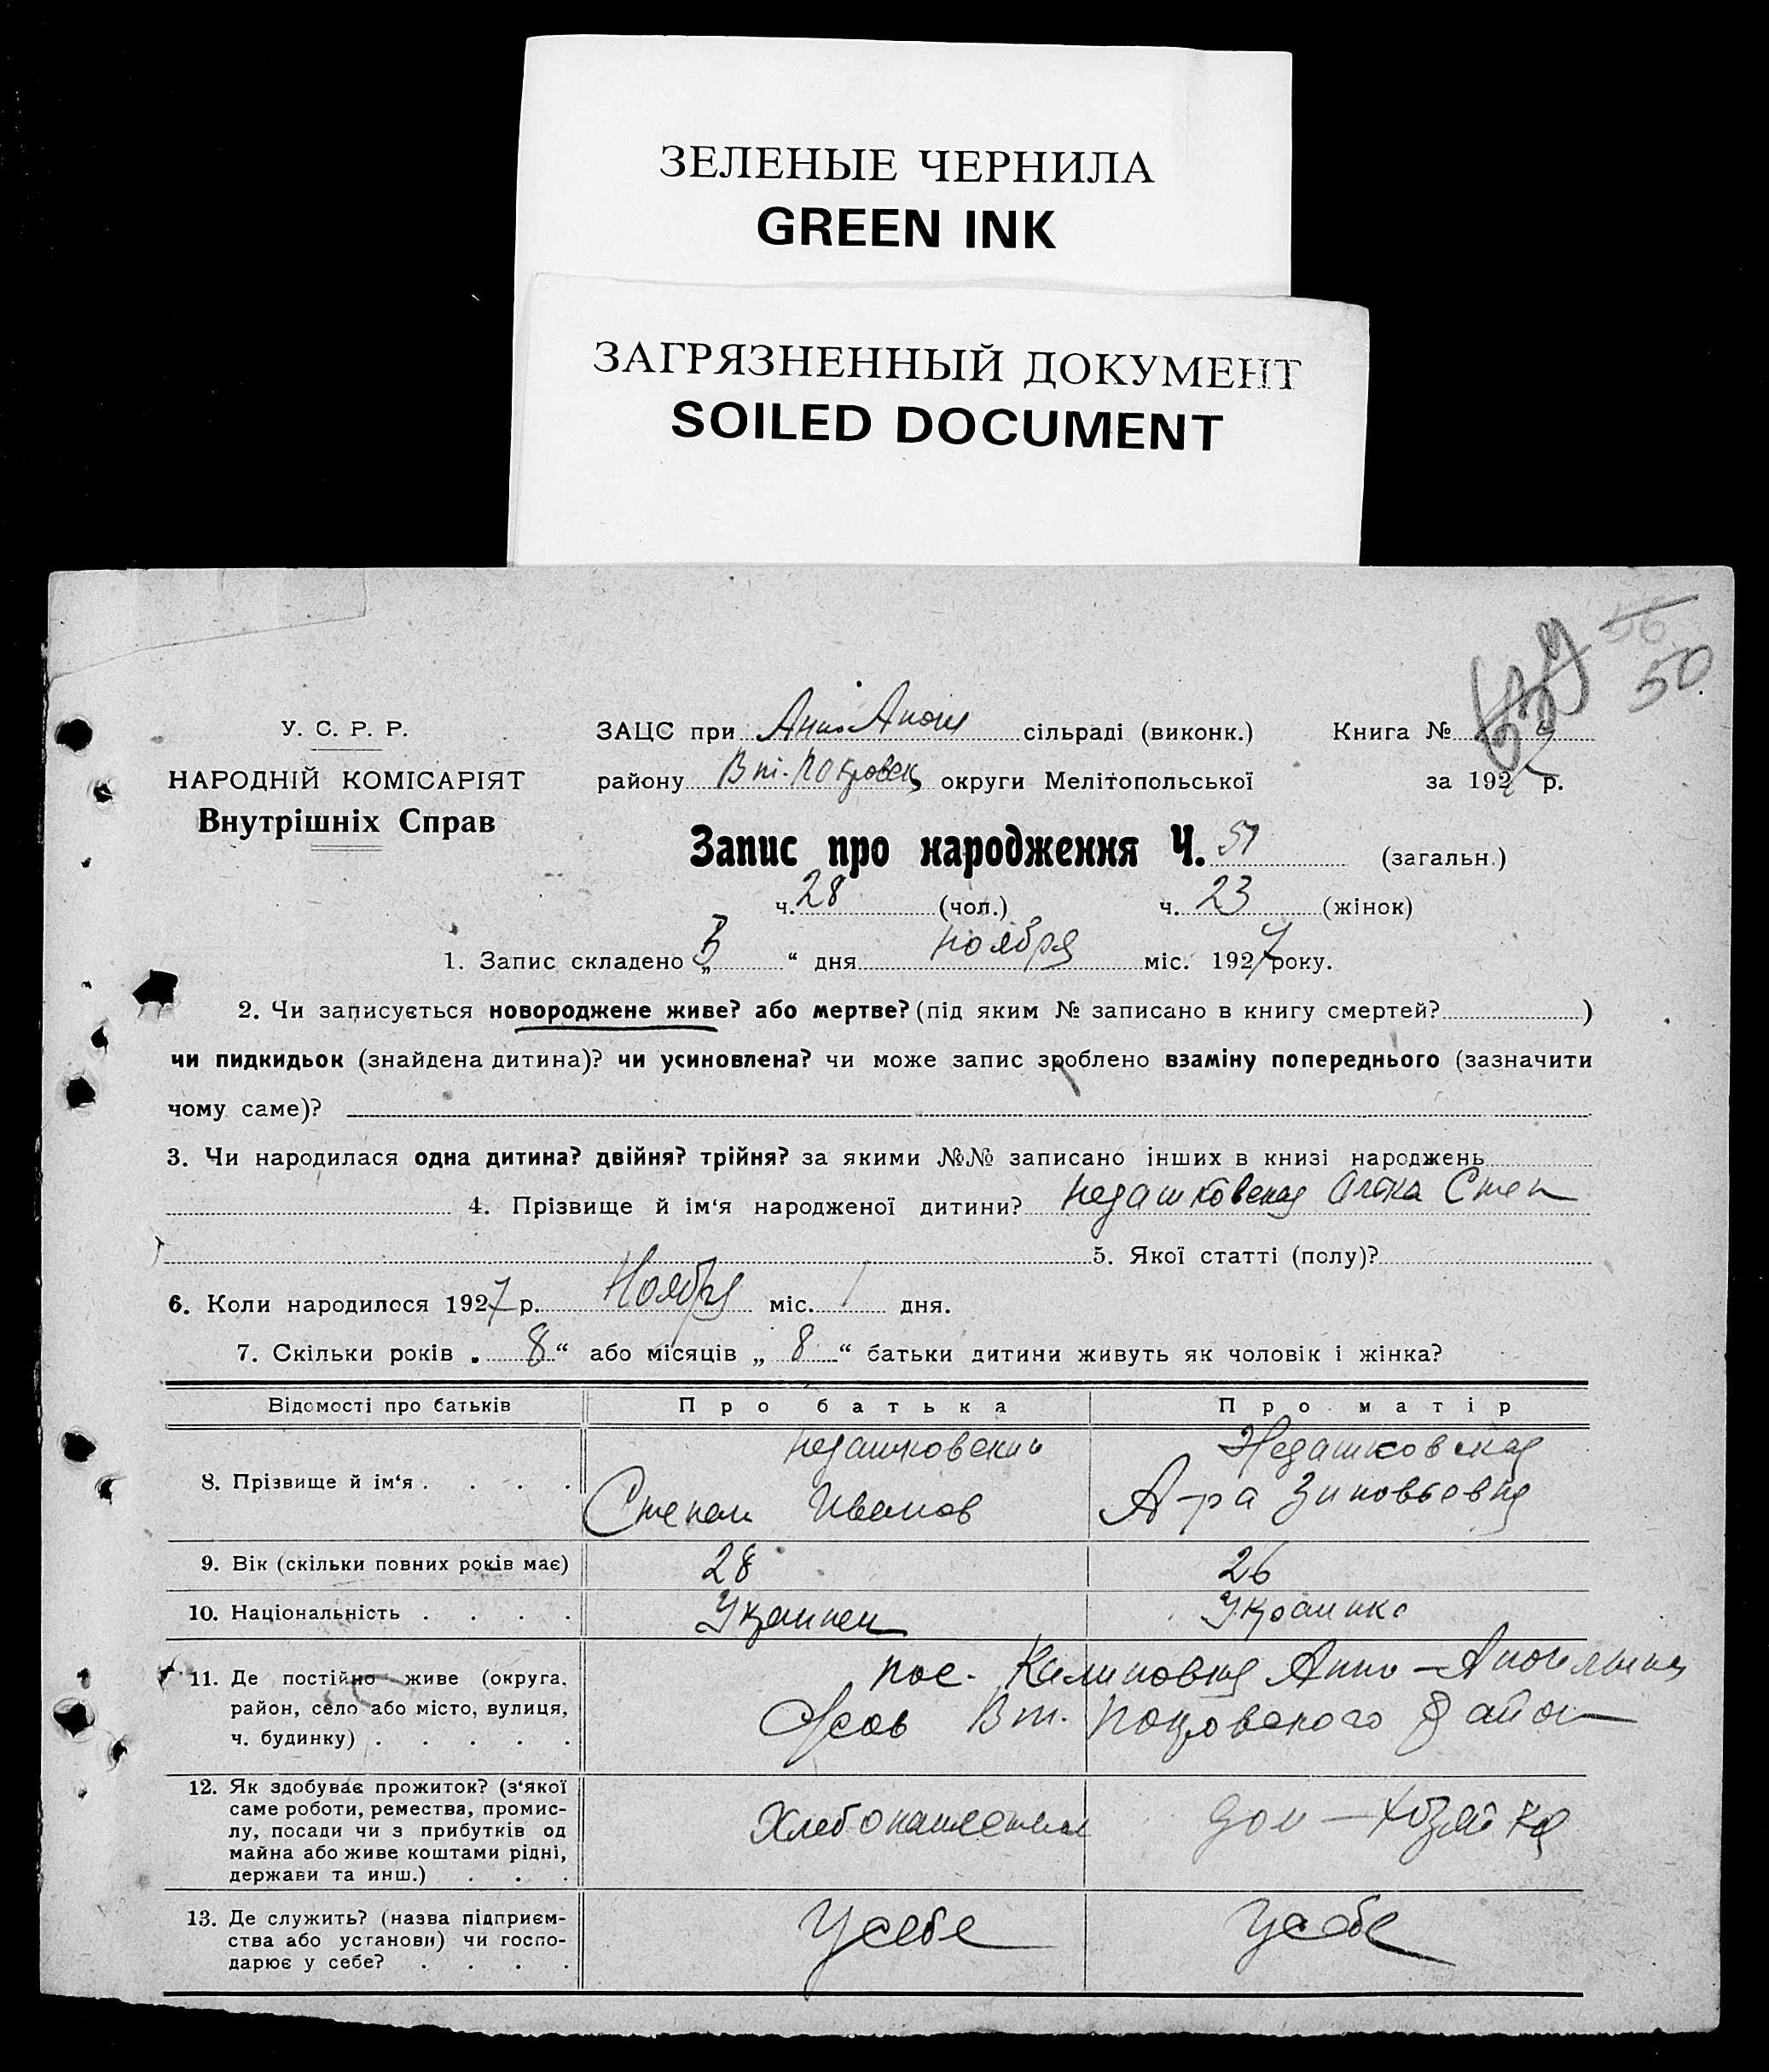 ЗЕЛЕНЫЕ ЧЕРНИЛА
GREEN INK
ЗАГРЯЗНЕННЫЙ ДОКУМЕНТ
SOILED DOCUMENT
50
У. С. Р. Р.
НАРОДНІЙ КОМІСАРІЯТ
Внутрішніх Справ
ЗАЦС при сільраді (виконк.) Книга №
району Вт.-Покровск округи Мелітопольської за 1927 р.
Запис про народження Ч. 51 (загальн.)
ч. 28 (чол.) ч. 23 (жінок)
1. Запис складено „ 3 “ дня ноября міс. 1927 року.
2. Чи записується новороджене живе? або мертве? (під яким № записано в книгу смертей? )
чи пидкидьок (знайдена дитина)? чи усиновлена? чи може запис зроблено взаміну попереднього (зазначити
чому саме)?
3. Чи народилася одна дитина? двійня? трійня? за якими №№ записано інших в книзі народжень
4. Прізвище й ім‘я народженої дитини? Недашковская Степ
5. Якої статті (полу)?
6. Коли народилося 1927 р. Ноября міс. 1 дня.
7. Скільки років „ 8 “ або місяців „ 8 “ батьки дитини живуть як чоловік і жінка?
Відомості про батьків Про батька Про матір
8. Прізвище й ім‘я . . . .
Недашковский
Степан Иванов
Недашковская
А-ра Зиновьевна
9. Вік (скільки повних років має) 28 26
10. Національність . . . . Украинец Украинка
11. Де постійно живе (округа,
район, село або місто, вулиця,
ч. будинку) . . . . .
пос. Калиновка Анно-
Вт. Покровского район
12. Як здобуває прожиток? (з‘якої
саме роботи, ремества, промис-
лу, посади чи з прибутків од
майна або живе коштами рідні,
держави та инш.) . . .
Хлебопашеством дом-хозяйка
13. Де служить? (назва підприєм-
ства або установи) чи госпо-
дарює у себе? . . . .
У себе У себе